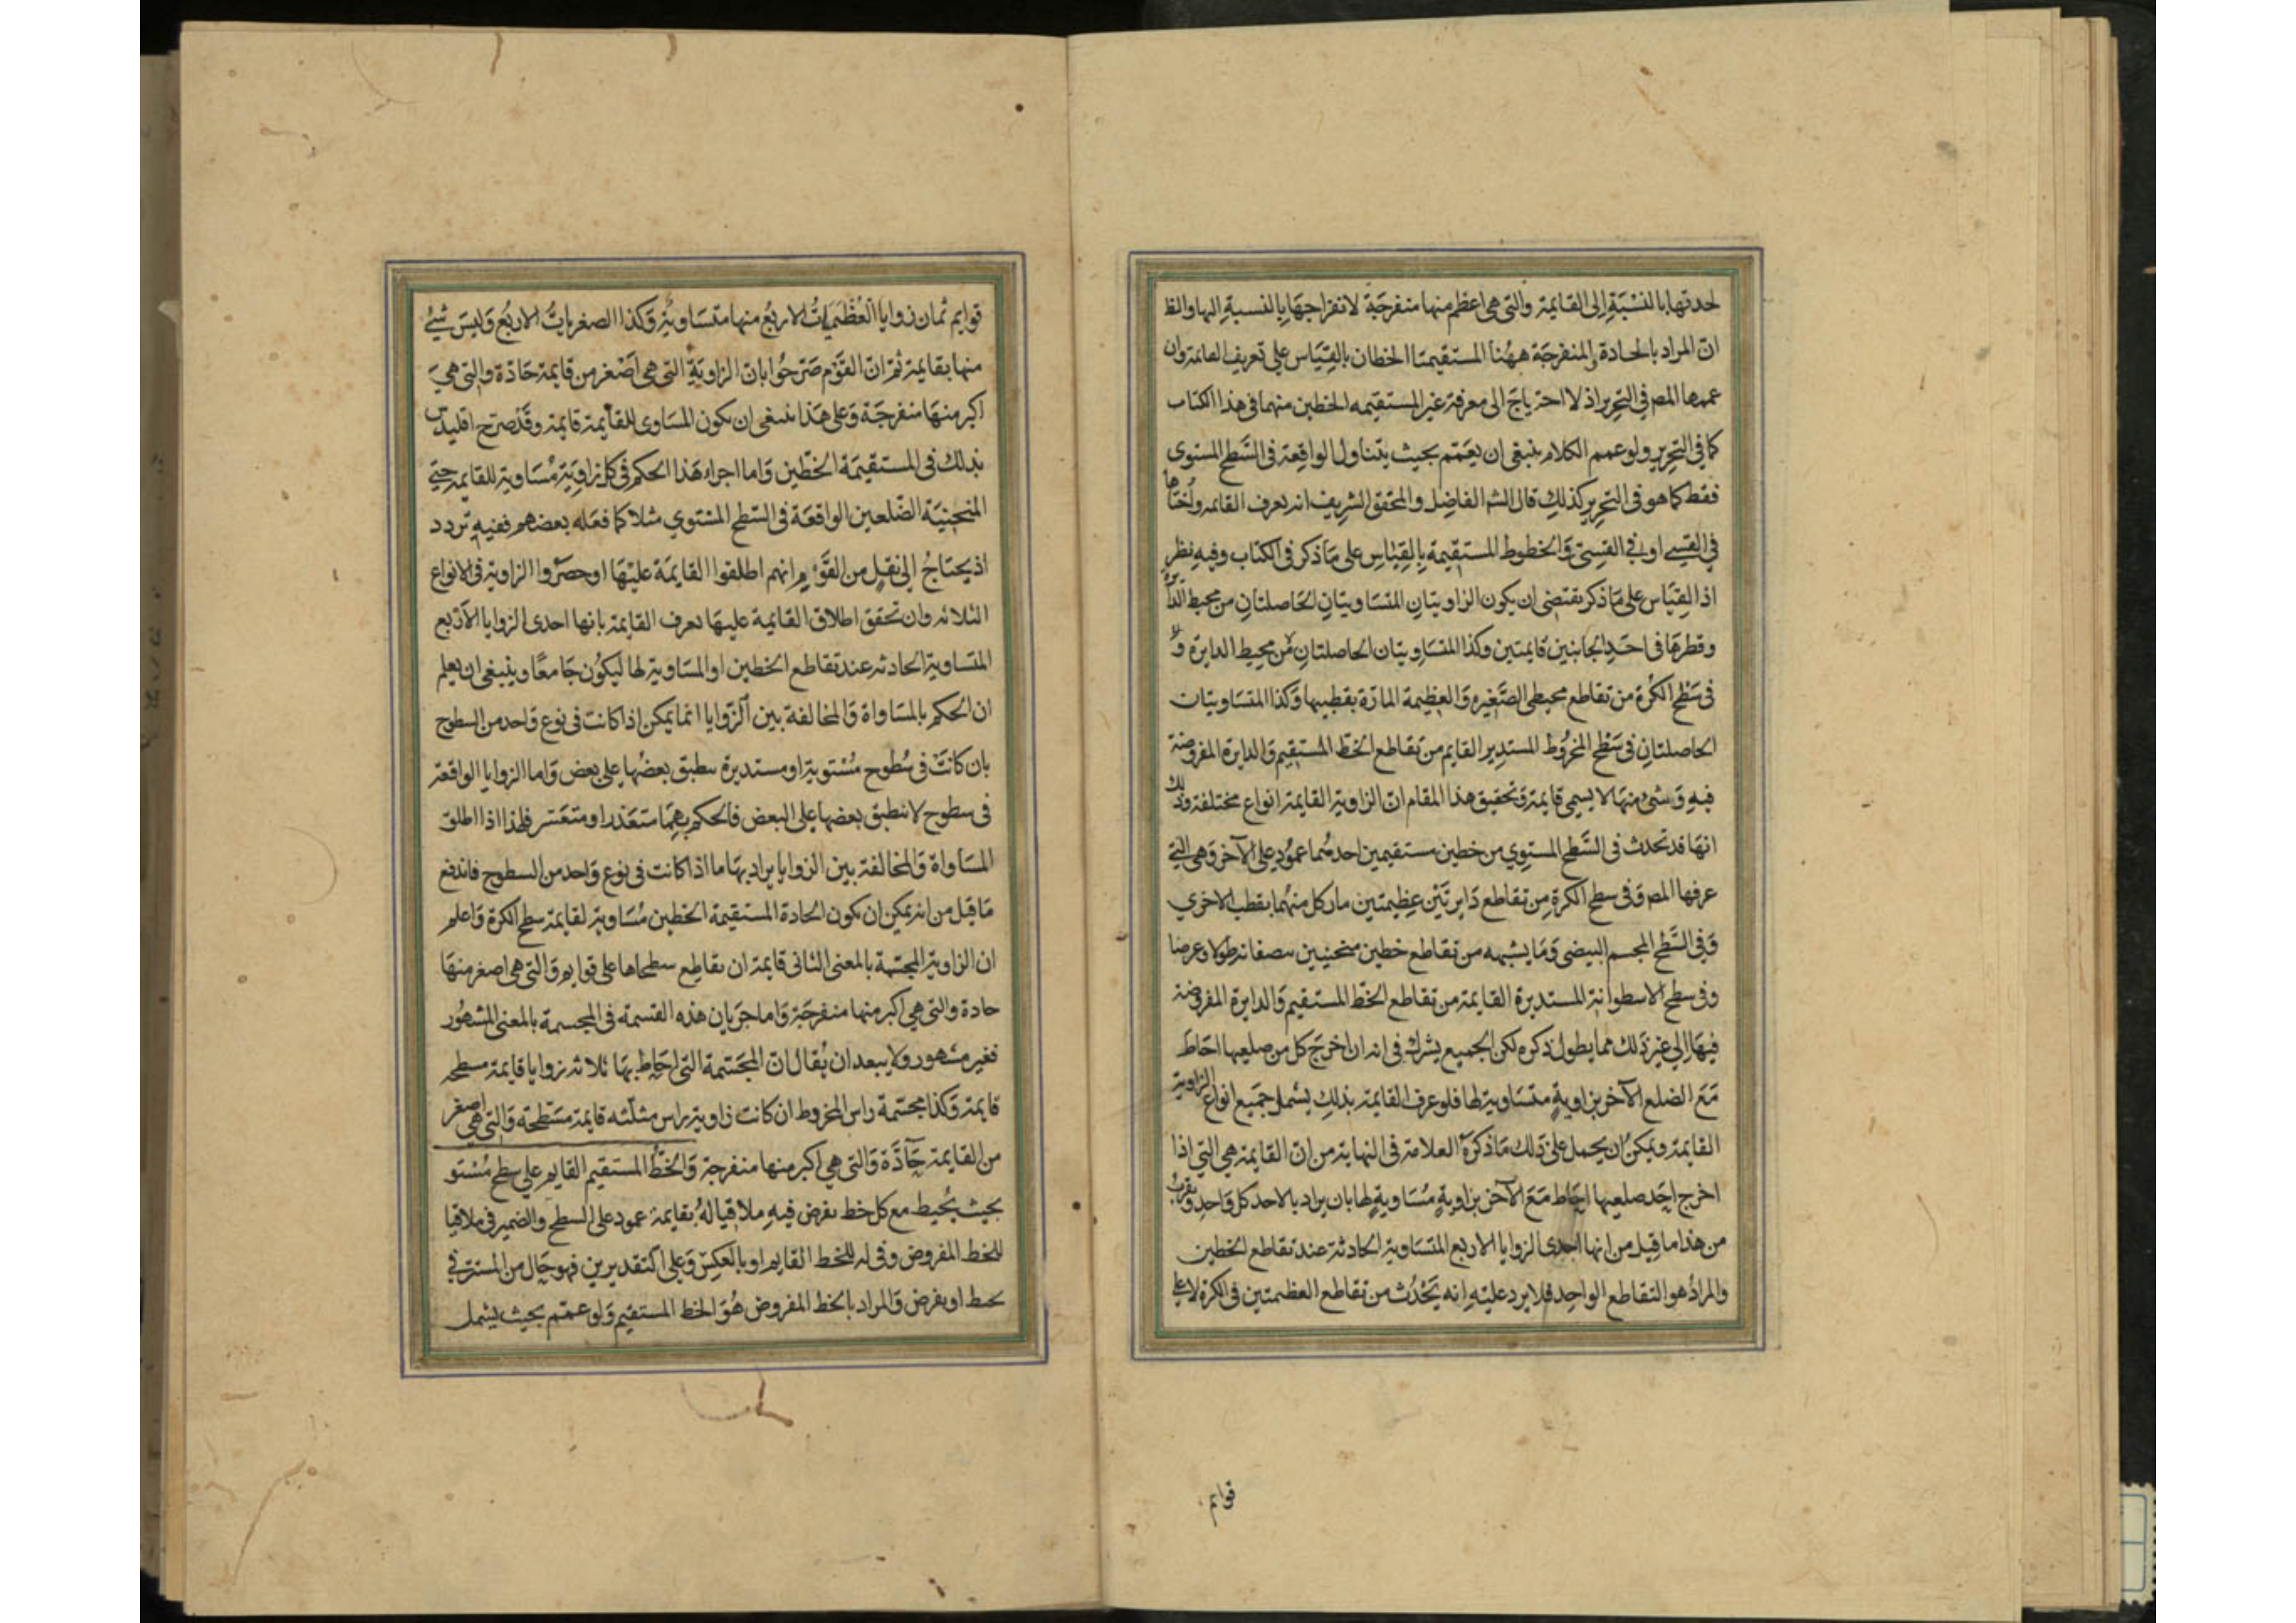 لحدتها بالنسبة الى القايمة والتى هى اعظم منها منفرجة لانفراجها بالنسبة اليها والظ
ان المراد بالحادة والمنفرجة ههنا المستقيمتا الخطان بالقياس على تعريف القايمة وان
عممها المص فى التحرير اذ لا احتياج الى معرفة غير المستقيمه الخطين منهما فى هذا الكتاب
كما فى التحرير ولو عمم الكلام ينبغى ان يعمم بحيث يتناول الواقعة فى السطح المستوى
فقط كما هو فى التحرير كذلك قال الشم الفاضل والمحقق الشريف انه يعرف القايمه واختاها
فى القسى او فى القسى والخطوط المستقيمة بالقياس على ما ذكر فى الكتاب وفيه نظر
اذ القياس على ما ذكر يقتضى ان يكون الزاويتان المتساويتان الحاصلتان من محيط الدايرة
وقطرها فى احد الجانبين قايمتين وكذا المتساويتان الحاصلتان من محيط الدايرة و
فى سطح الكرة من تقاطع محيطى الصغيره والعظيمة المارة بقطبيها وكذا المتساويتان
الحاصلتان فى سطح المخروط المستدير القايم من تقاطع الخط المستقيم والدايرة المفروضة
فيه وشئ منها لا يسمى قايمة وتحقيق هذا المقام ان الزاوية القايمة انواع مختلفة وذلك
انها قد تحدث فى السطح المستوي من خطين مستقيمين احدهما عمود على الآخر وهى التي
عرفها المص وفى سطح الكرة من تقاطع دايرتين عظيمتين مار كل منهما بقطب الاخري
وفى السطح المجسم البيضى وما يشبهه من تقاطع خطين منحنيين ينصفانه طولا وعرضا
وفى سطح الاسطوانة المستديرة القايمة من تقاطع الخط المستقيم والدايرة المفروضة
فيها الى غير ذلك مما يطول ذكره لكن الجميع يشترك فى انه ان اخرج كل من ضلعيها احاط
مع الضلع الآخر بزاوية متساوية لها فلو عرف القايمة بذلك يشمل جميع انواع الزاوية
القايمة ويمكن ان يحمل على ذلك ما ذكره العلامة فى النهاية من ان القايمة هى التي اذا
اخرج احد ضلعيها احاط مع الآخر بزاوية مساوية لها بان يراد بالاحد كل واحد ويقرب
من هذا ما قيل من انها احدى الزوايا الاربع المتساوية الحادثة عند تقاطع الخطين
والمراد هو التقاطع الواحد فلا يرد عليه انه يحدث من تقاطع العظيمتين فى الكرة لا على
قوايم
قوايم ثمان زوايا العظميات الاربع منها متساوية وكذا الصغريات الاربع وليس شئ
منها بقايمة ثم ان القوم صرحوا بان الزاوية التى هى اصغر من قايمة حادة والتى هى
اكبر منها منفرجة وعلى هذا ينبغى ان يكون المساوى للقايمة قايمة وقد صرح اقليدس
بذلك فى المستقيمة الخطين واما اجراء هذا الحكم فى كل زاوية مساوية للقايمة حتى
المنحنية الضلعين الواقعة فى السطح المستوي مثلا كما فعله بعضهم ففيه تردد
اذ يحتاج الى نقل من القوم انهم اطلقوا القايمة عليها او حصروا الزاوية فى الانواع
الثلاثه وان تحقق اطلاق القايمة عليها يعرف القايمة بانها احدى الزوايا الاربع
المتساوية الحادثه عند تقاطع الخطين او المساوية لها ليكون جامعا وينبغى ان يعلم
ان الحكم بالمساواة والمخالفة بين الزوايا انما يمكن اذا كانت فى نوع واحد من السطوح
بان كانت فى سطوح مستوية او مستديرة ينطبق بعضها على بعض واما الزوايا الواقعة
فى سطوح لا ينطبق بعضها على البعض فالحكم بهما متعذر او متعسر فلذا اذا اطلق
المساواة والمخالفة بين الزوايا يراد بها ما اذا كانت فى نوع واحد من السطوح فاندفع
ما قيل من انه يمكن ان يكون الحادة المستقيمة الخطين مساوية لقايمة سطح الكرة واعلم
ان الزاوية المجسمة بالمعنى الثانى قايمة ان تقاطع سطحاها على قوايم والتى هى اصغر منها
حادة والتى هى اكبر منها منفرجة واما جريان هذه القسمة فى المجسمة بالمعنى المشهور
فغير مشهور ولا يبعد ان يقال ان المجسمة التى احاط بها ثلاثه زوايا قايمة مسطحه
قايمة وكذا مجسمة راس المخروط ان كانت زاوية راس مثلثه قايمة مسطحه والتى هى اصغر
من القايمة حادة والتى هى اكبر منها منفرجة والخط المستقيم القايم على سطح مستو
بحيث يحيط مع كل خط يفرض فيه ملاقيا له بقايمة عمود على السطح والضمير فى ملاقيا
للخط المفروض وفى له للخط القايم او بالعكس وعلى التقديرين فهو حال من المستتر فى
يحيط او يفرض والمراد بالخط المفروض هو الخط المستقيم ولو عمم بحيث يشمل